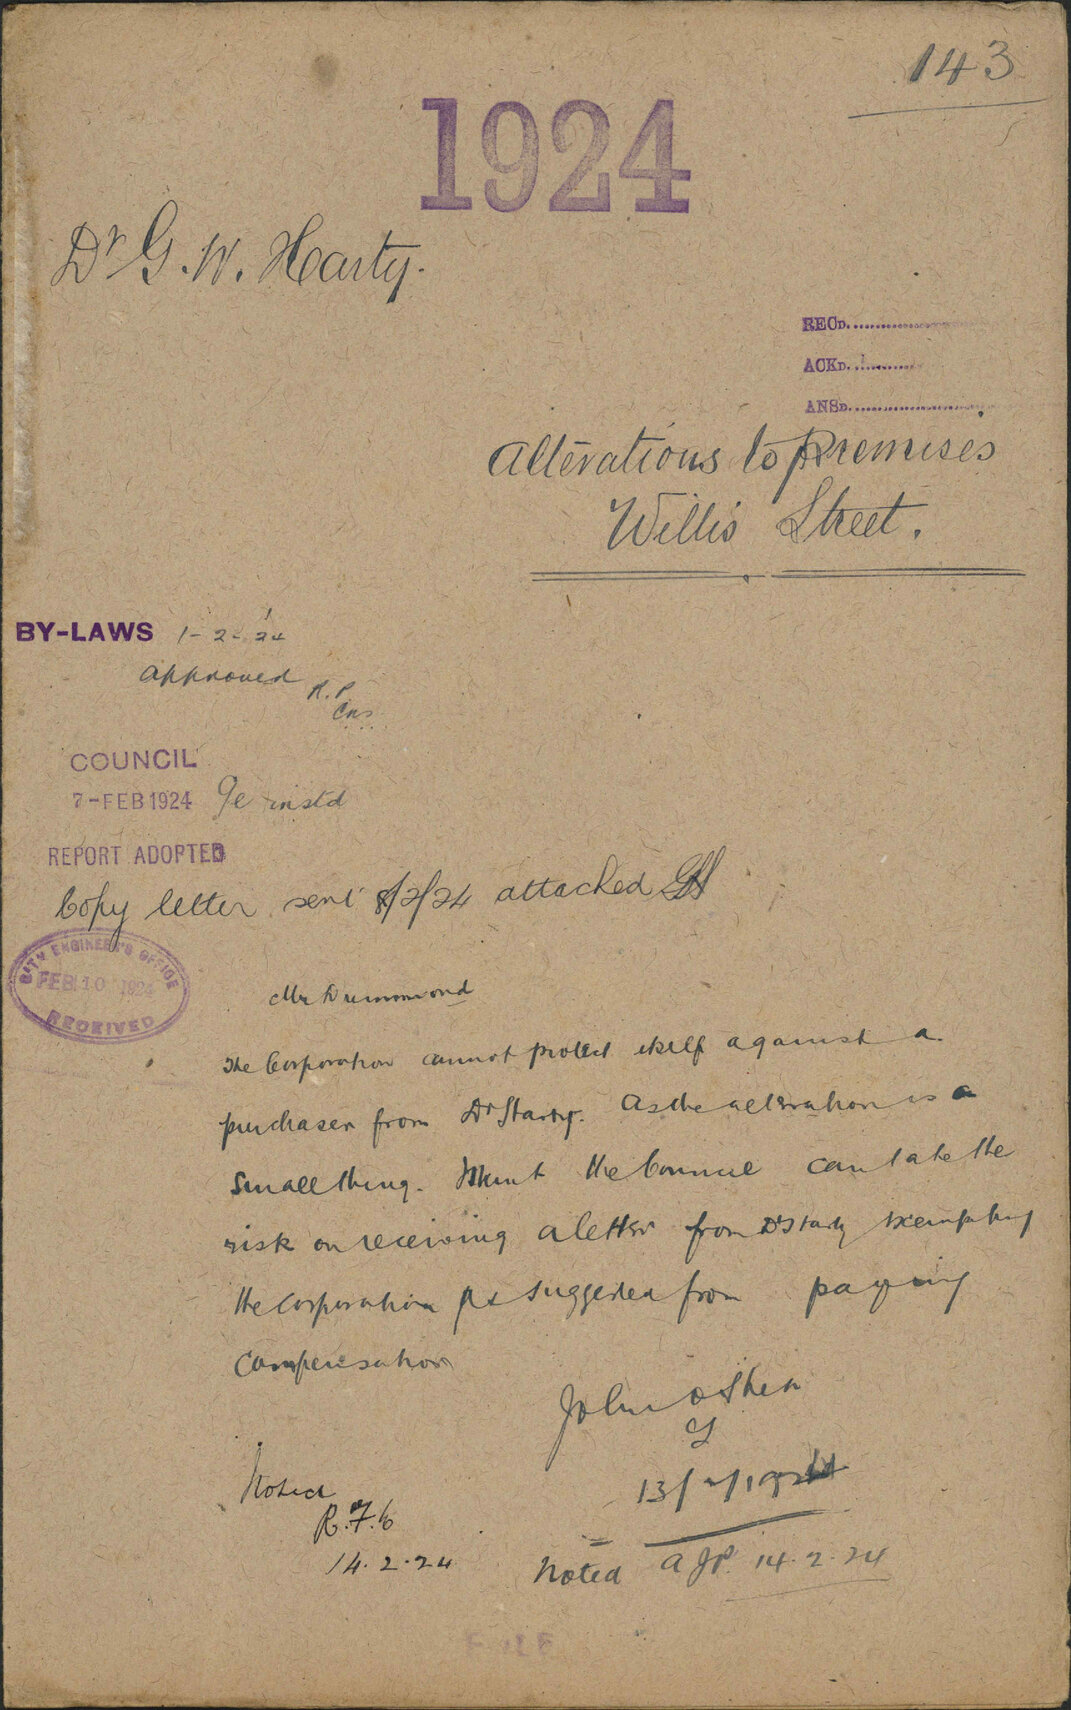 143
1924
Dr G. W. Harty.
RECD.
ACKD.
ANSD.
Alterations to Premises
Willis Street.
BY-LAWS 1-2-24
Approved R.P.
COUNCIL
7-FEB 1924
REPORT ADOPTED
Copy letter sent 8/2/24 attached
CITY ENGINEER'S OFFICE
FEB 10 1924
RECEIVED
Mr Drummond
The Corporation cannot protect itself against a
purchaser from Dr Harty. As the alteration is a
small thing. I think the Council can take the
risk on receiving a letter from Dr Harty exempting
the corporation as suggested from paying
compensation
John O'Shea
CS
13/2/1924
Noted
14.2.24
Noted AJP. 14.2.24
FILE